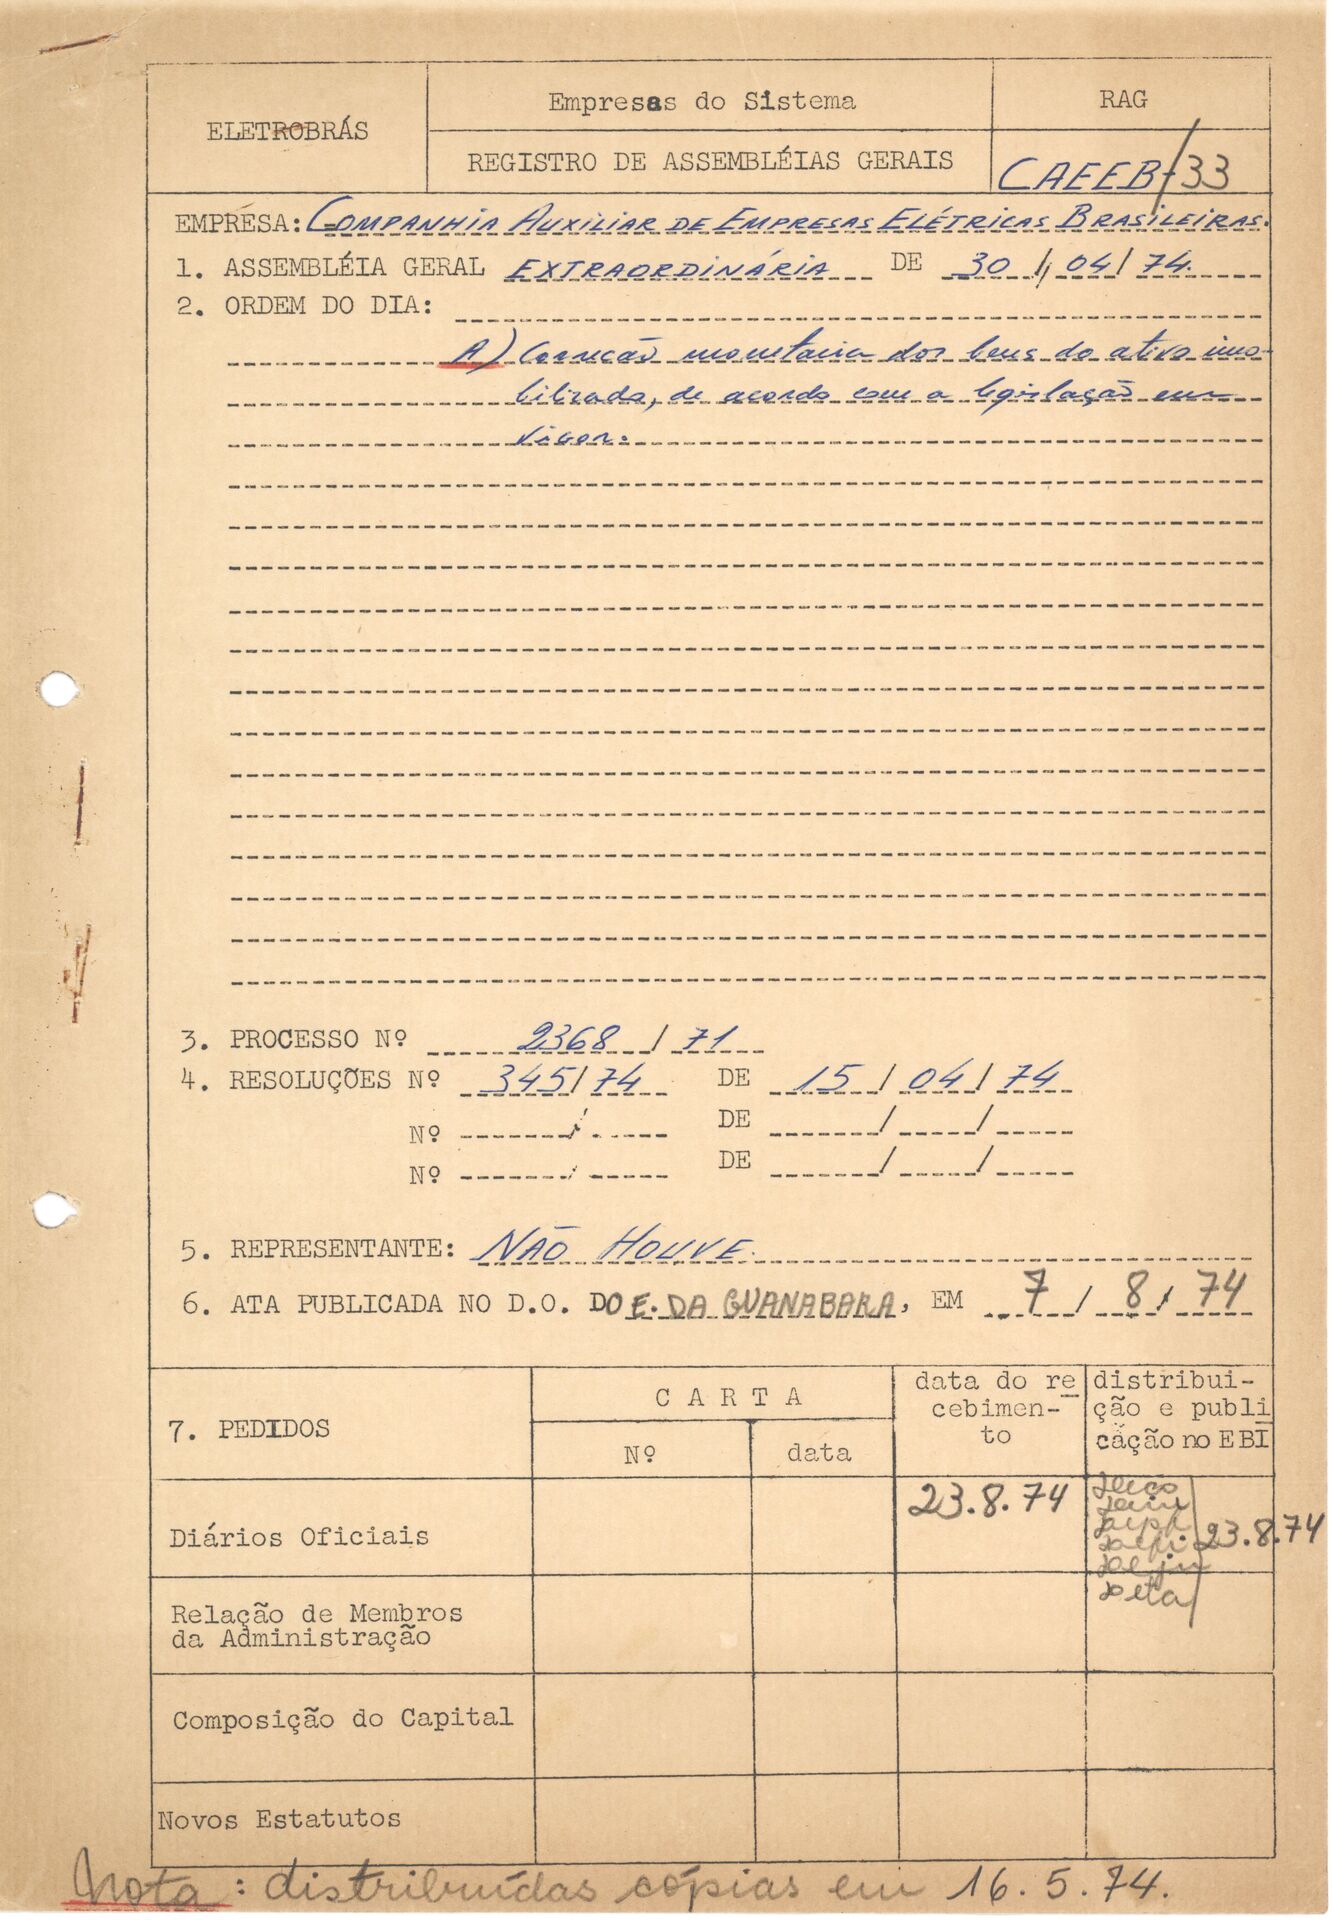 ELETROBRÁS
Empresas do Sistema
REGISTRO DE ASSEMBLÉIAS GERAIS
RAG
CAEEB/33
EMPRESA: COMPANHIA AUXILIAR DE EMPRESAS ELÉTRICAS BRASILEIRAS.
1. ASSEMBLÉIA GERAL EXTRAORDINÁRIA DE 30/04/74
2. ORDEM DO DIA:
A) Correção monetária dos bens do ativo imo-
bilizado, de acordo com a legislação em
vigor.
3. PROCESSO Nº 2368/71
4. RESOLUÇÕES Nº 345/74 DE 15/04/74
Nº / DE / /
Nº / DE / /
5. REPRESENTANTE: NÃO HOUVE.
6. ATA PUBLICADA NO D.O. DO E. DA GUANABARA, EM 7/8/74
7. PEDIDOS
CARTA
Nº
data
data do re
cebimen-
to
distribui-
ção e publi
cação no EBI
Diários Oficiais
23.8.74
23.8.74
Relação de Membros
da Administração
Composição do Capital
Novos Estatutos
Nota: distribuídas cópias em 16.5.74.